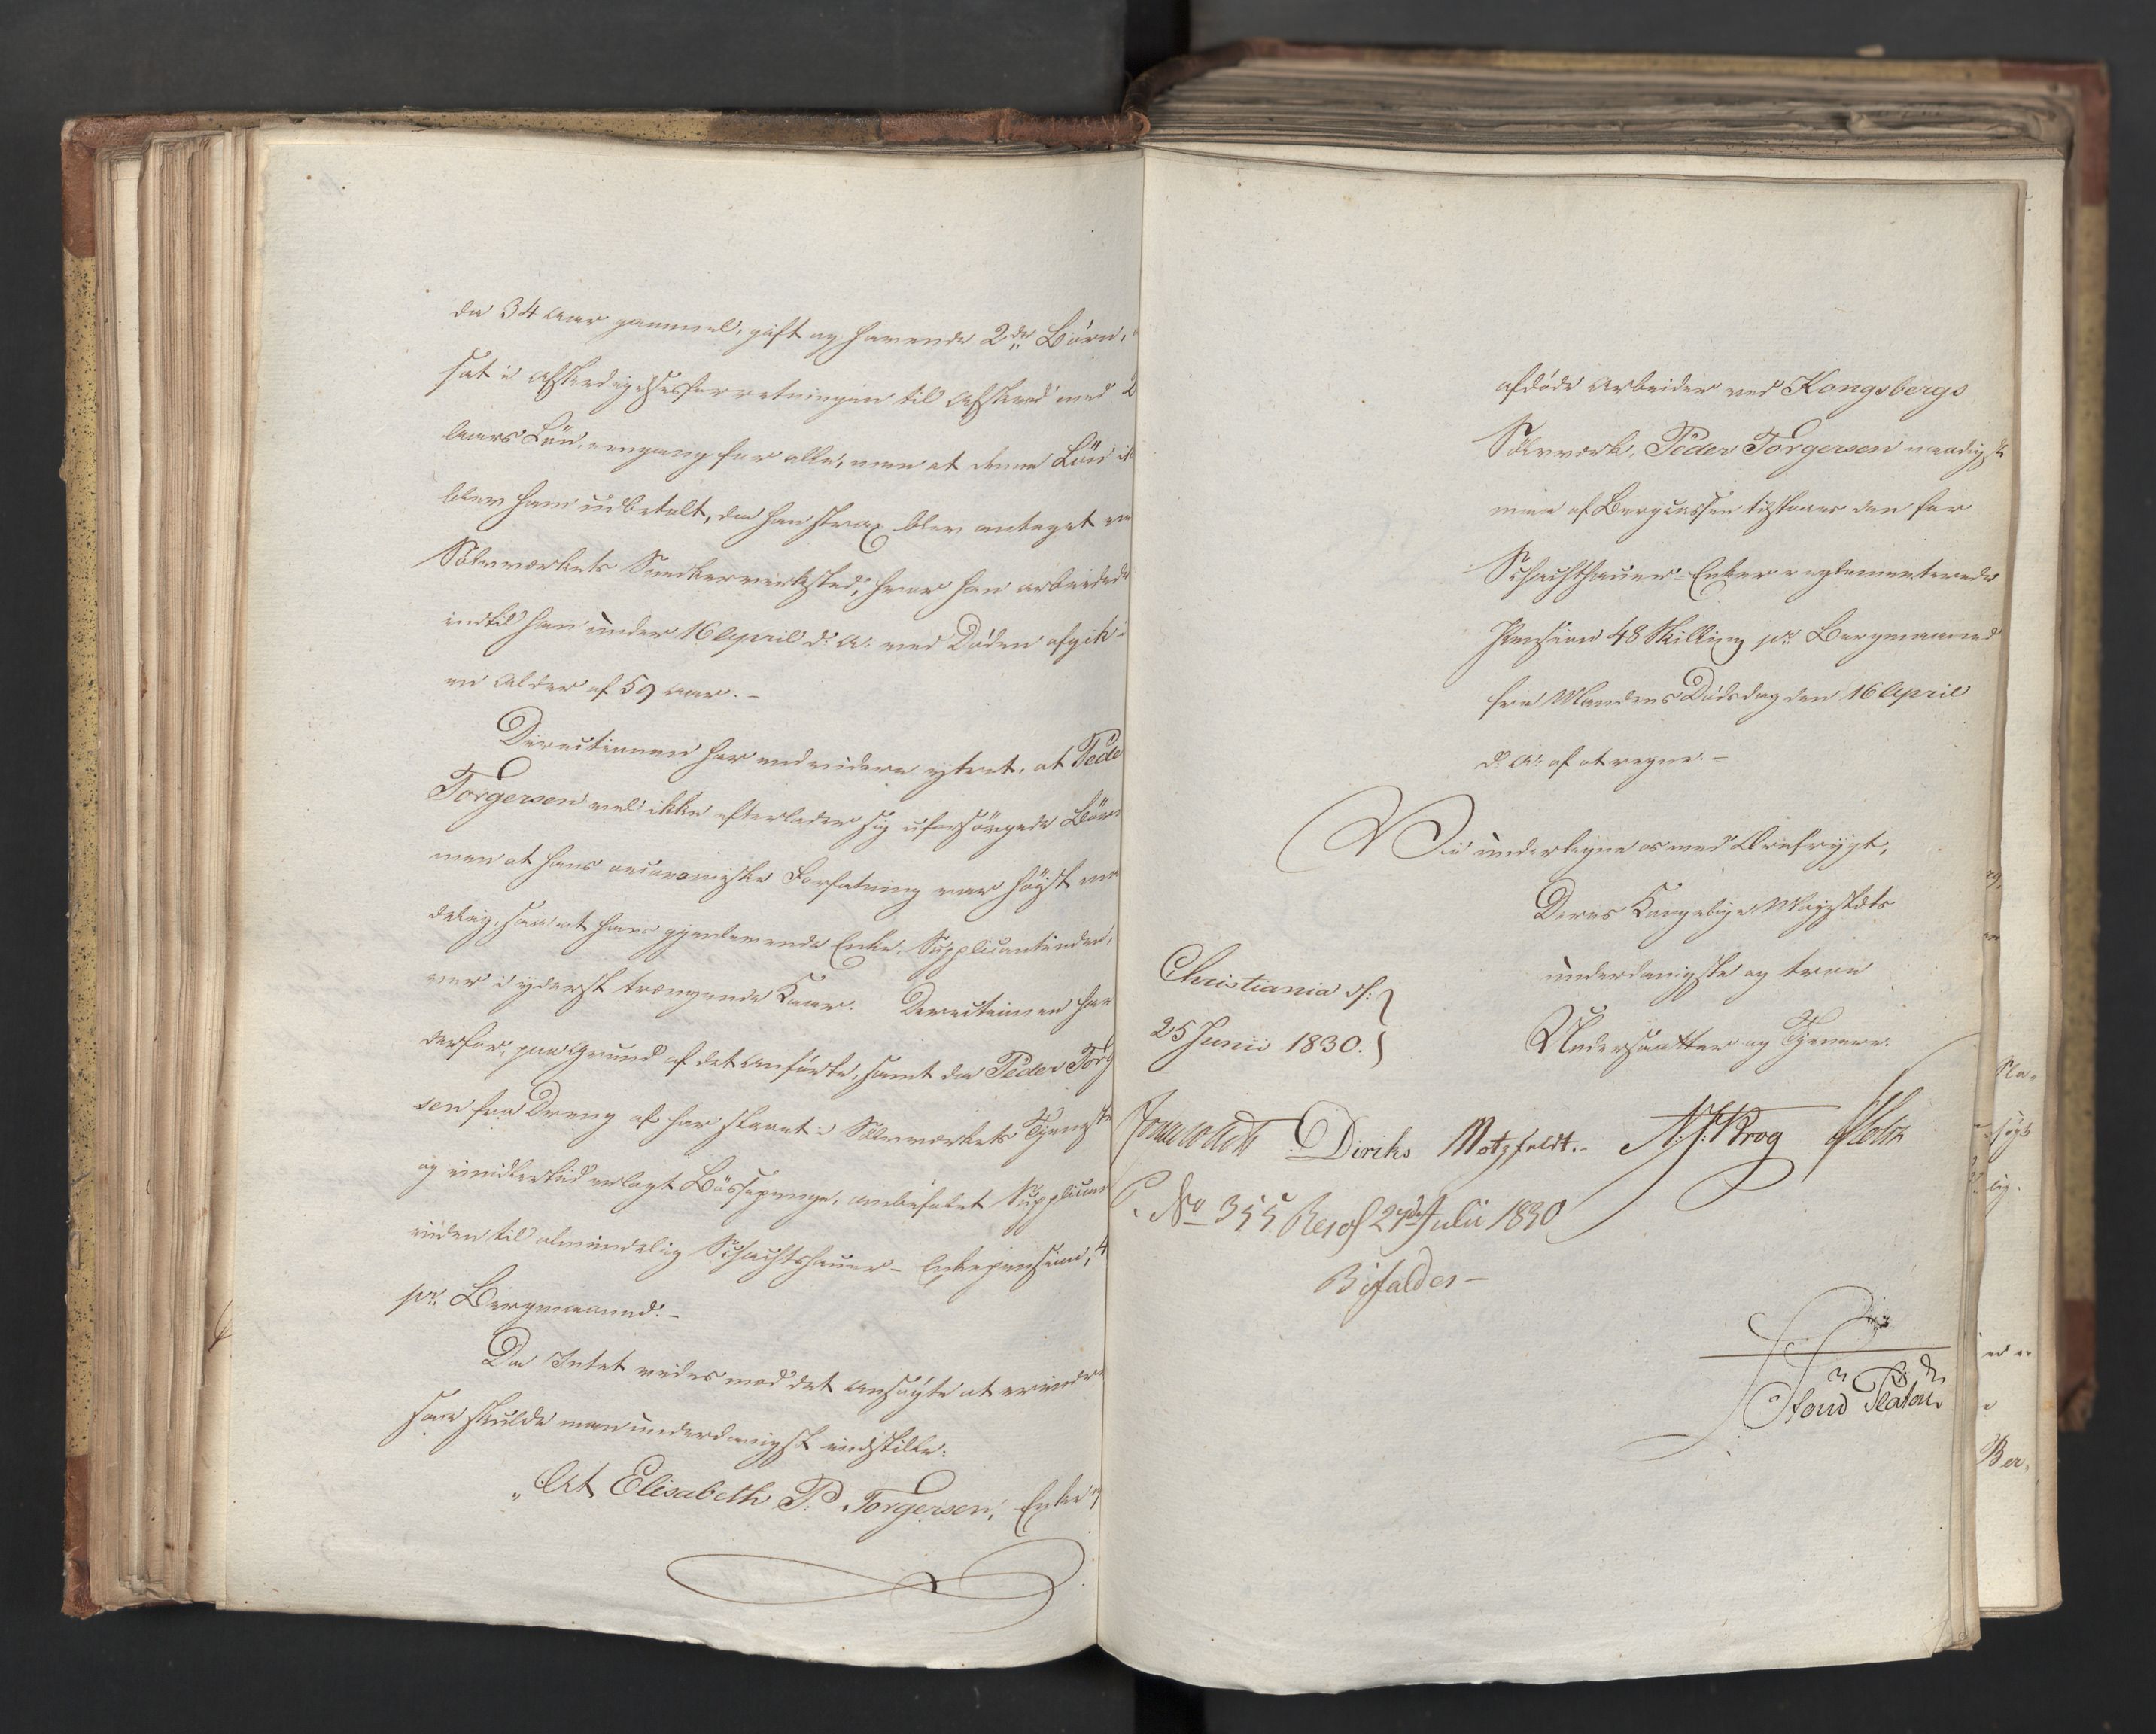 da 34 Aar gammel, gift og havende 2de Børn,
sat i Afskedigelsesforretningen til Afskeed med 2
Aars Løn, eengang for alle, men at denne Løn
blev ham udbetalt, da han strax blev antaget
Sølvværkets Snedkerværksted, hvor han arbeidede
indtil han under 16 April d: A: ved Døden afgik i
en Alder af 59 Aar. –
Directionen har endvidere yttret, at Pede
Torgersen vel ikke efterlader sig uforsørgede Børn
men at hans oeconomiske Forfatning var høist
delig, saa at hans gjenlevende Enke, Supplicantinden,
var i yderst trængende Kaar. Directionen har
derfor, paa Grund af det Anførte, samt da Peder Torg
sen fra Dreng af har staaet i Sølvværkets Tjeneste
og imidlertid erlagt Bøssepenge, anbefalet Supplican
tinden til almindelig Schachthauer-Enkepension, 4
pr. Bergmaaned. –
Da Intet vides mod det Ansøgte at erindre
saa skulde man underdanigst indstille:
„At Elisabeth P. Torgersen, Enke
afdøde Arbeider ved Kongsbergs
Sølvværk, Peder Torgersen naadigst
maa af Bergcassen tilstaaes den for
Schachthauer-Enker reglementerede
Pension 48 Skilling pr. Bergmaaned
fra Mandens Dødsdag den 16 April
d: A: af at regne. –
Vi undertegne os med Ærefrygt,
Deres Kongelige Majestæts
underdanigste og troe
Undersaatter og Tjenere.
Christiania d:
25 Junii 1830.
Diriks Motzfeldt. Krog Holst
No 355. Resol 27de Julii 1830
Bifaldes –